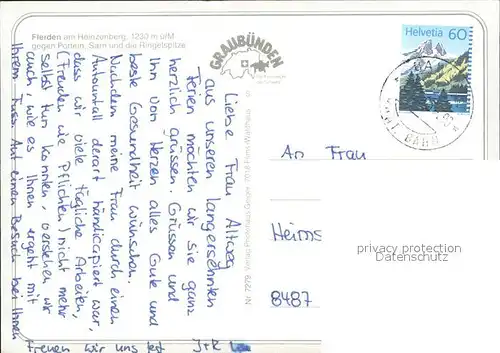 Flerden am Heinzenberg, 1230 m ü/M
gegen Portein, Sarn und die Ringelspitze
GRAUBÜNDEN
Helvetia 60
Liebe Frau Altweg
aus unseren langersehnten
Ferien möchten wir sie ganz
herzlich grüssen. Grüssen und
Ihn von Herzen alles Gute und
beste Gesundheit wünschen.
Nachdem meine Frau durch einen
Autounfall derart handicapiert war,
dass wir viele tägliche Arbeiten,
(Freuden wie Pflichten) nicht mehr
selbst tun konnten, verstehen wir
auch, wie es Ihnen ergeht mit
Ihrem Fuss. Auf einen Besuch bei Ihnen
freuen wir uns fest J+R
An Frau
Heims
8487
privacy protection
Datenschutz